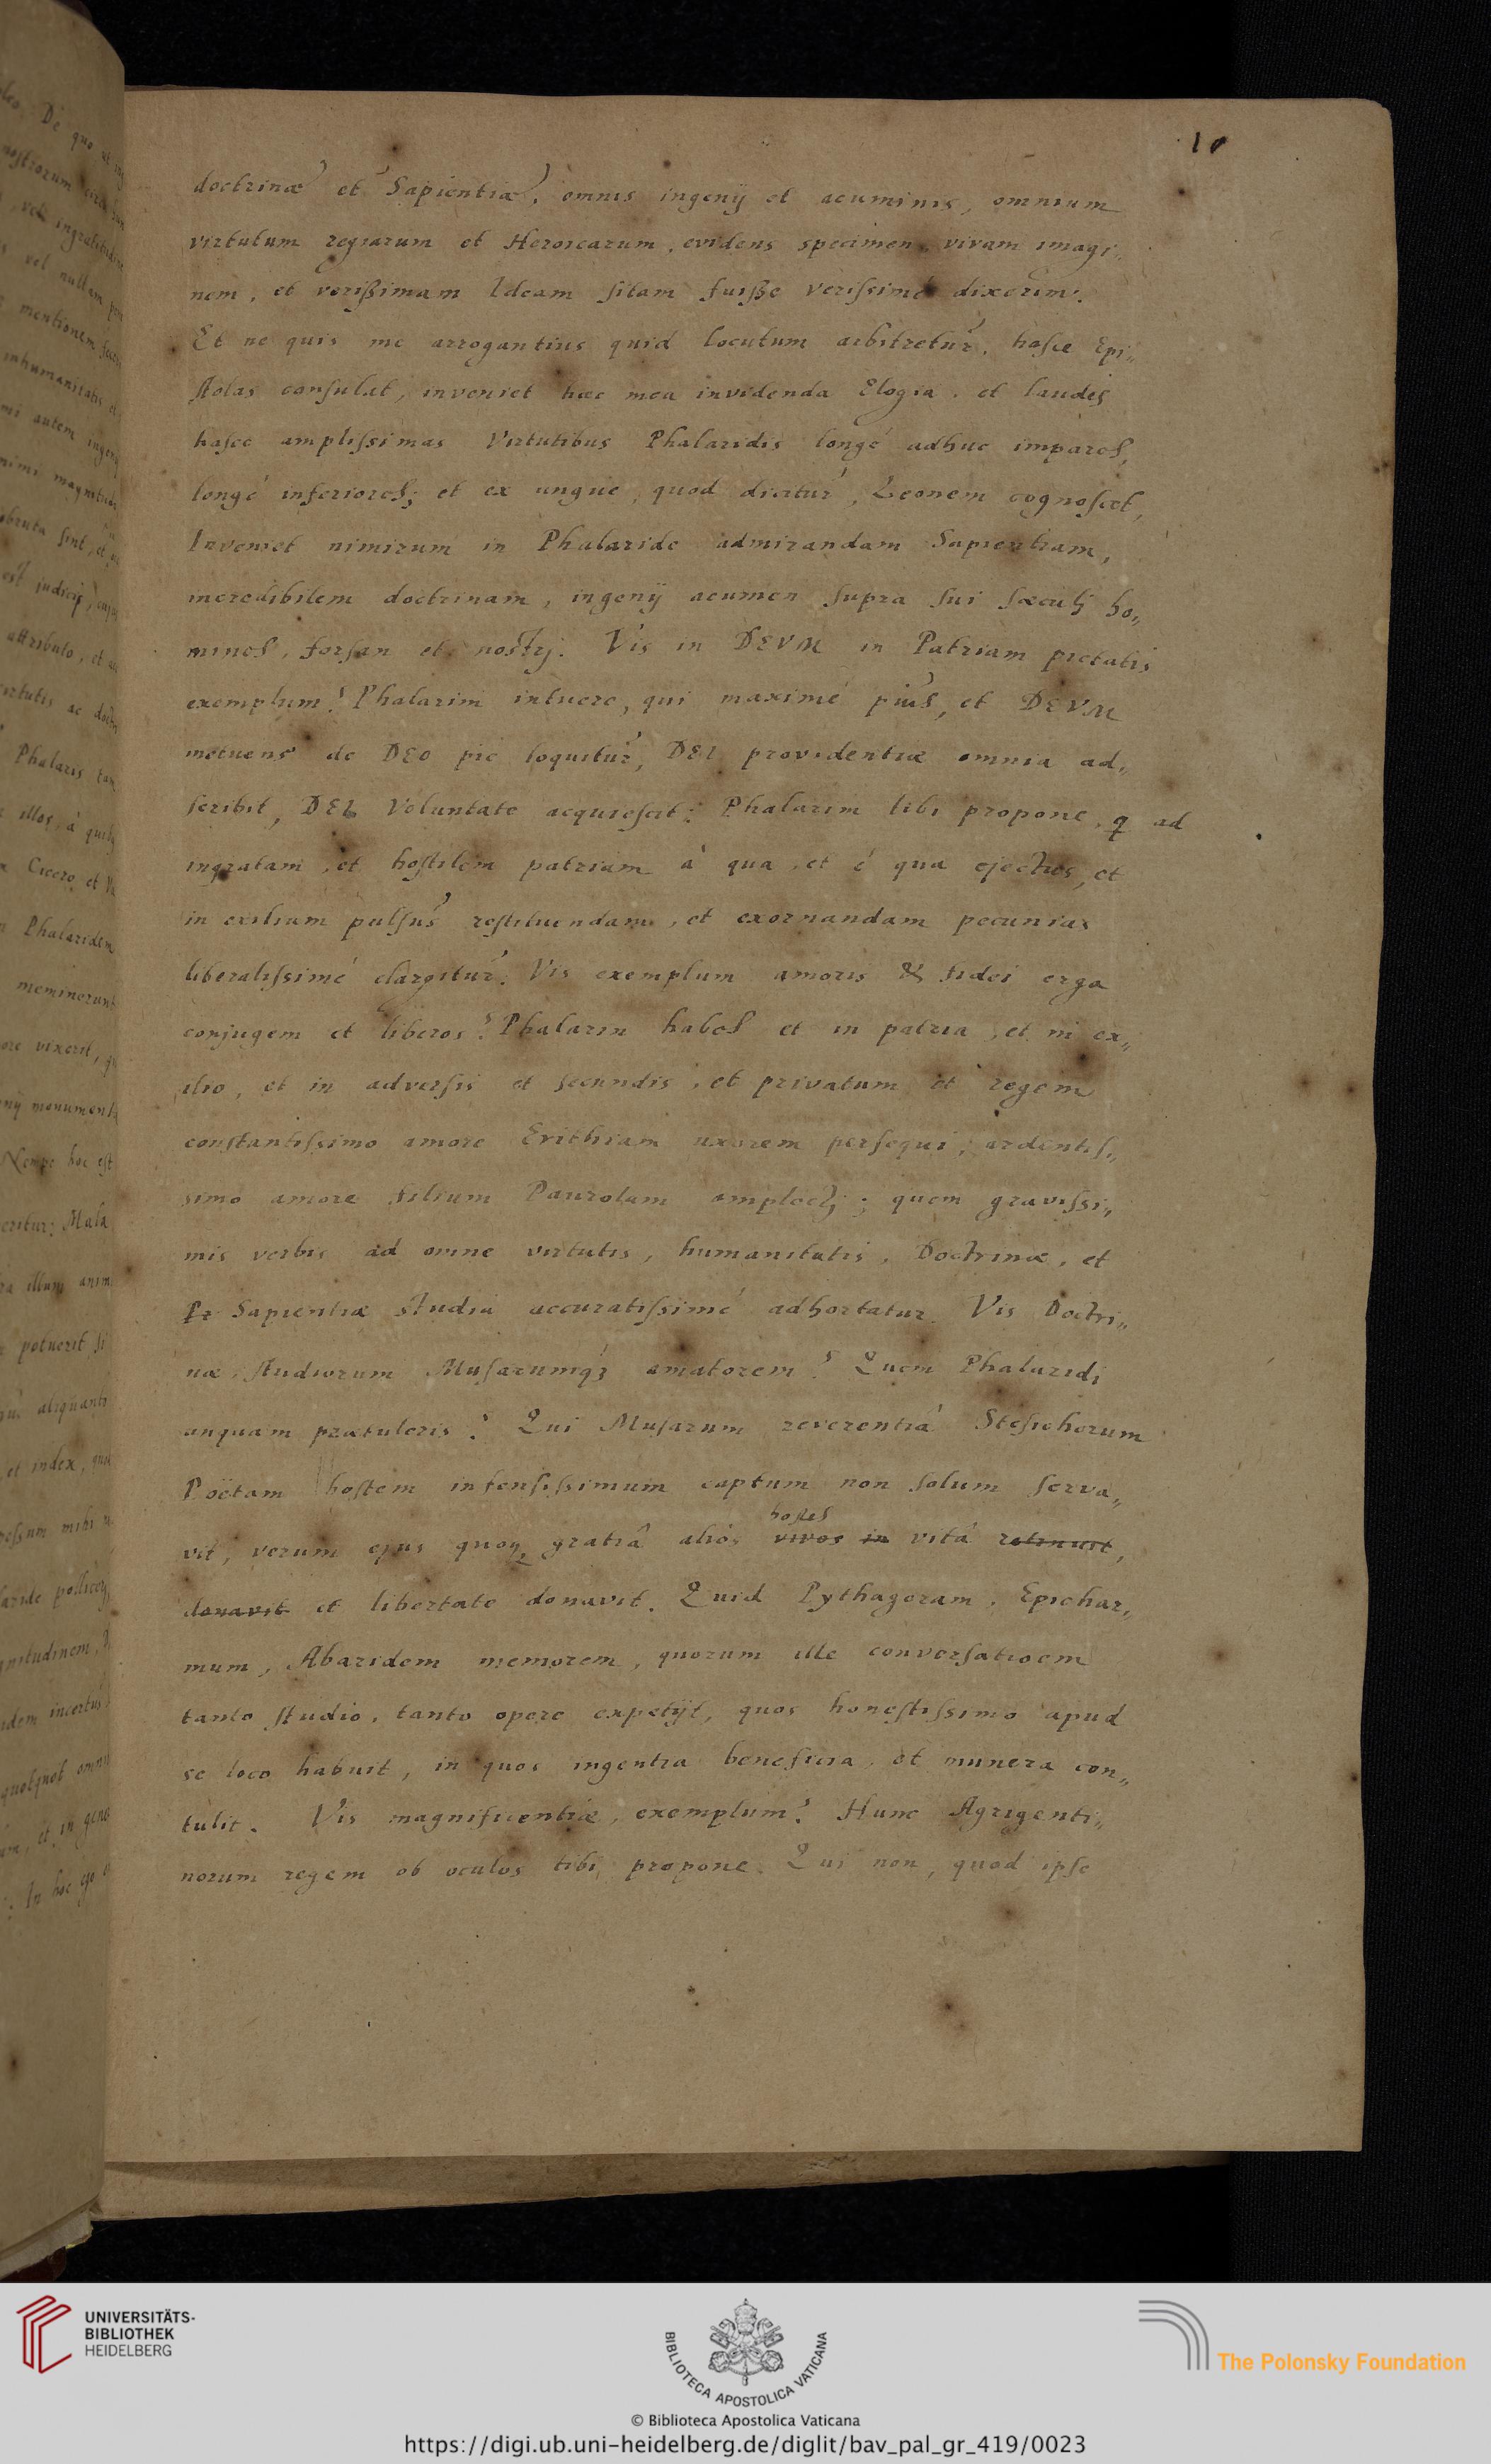 10
doctrinæ et Sapientiæ, omnis ingenij et acuminis, omnium
virtutum regiarum et Heroicarum, evidens specimen, vivam imagi„
nem, et verißimam Ideam sitam fuiße verissimé dixerim.
Et ne quis me arrogantius quid locutum arbitretur, hasce Epi„
stolas consulat, inveniet hæc mea invidenda Elogia, et laudes
hasce amplissimas Virtutibus Phalaridis longé adhuc impares,
longé inferiores; et ex ungue, quod dicitur, Leonem cognoscet,
Inveniet nimirum in Phalaride admirandam Sapientiam,
incredibilem doctrinam, ingenij acumen supra sui sæculj ho„
mines, forsan et nostrj. Vis in DEVM in Patriam pietatis
exemplum? Phalarim intuere, qui maximé pius, et DEVM
metuens de DEO pie loquitur, DEI providentiæ omnia ad„
scribit, DEI Voluntate acquiescit: Phalarim tibi propone, q ad
ingratam, et hostilem patriam à qua, et é qua ejectus, et
in exilium pulsus restituendam, et exornandam pecunias
liberalissimé elargitur. Vis exemplum amoris & fidei erga
conjugem et liberos? Phalarin habes et in patria, et in ex„
ilio, et in adversis et secundis, et privatum et regem
constantissimo amore Erithiam uxorem persequi; ardentis„
simo amore filium Paurolam amplectj; quem gravissi„
mis verbis ad omne virtutis, humanitatis, Doctrinæ, et
Pr Sapientiæ studia accuratissimé adhortatur. Vis Doctri„
næ, studiorum Musarumq; amatorem? Quem Phalaridi
unquam prætuleris? Qui Musarum reverentiá Stesichorum
Poëtam hostem infensissimum captum non solum serva„
hostes
vit, verum ejus quoq; gratiâ aliós vivos in vitâ retinuit,
donavit et libertate donavit. Quid Pythagoram, Epichar„
mum, Abaridem memorem, quorum ille conversatioem
tanto studio, tanto opere expetijt, quos honestissimo apud
se loco habuit, in quos ingentia beneficia, et munera con„
tulit. Vis magnificentiæ, exemplum? Hunc Agrigenti„
norum regem ob oculos tibi propone. Qui non, quod ipse
UNIVERSITÄTS-
BIBLIOTHEK
HEIDELBERG
BIBLIOTECA APOSTOLICA VATICANA
The Polonsky Foundation
© Biblioteca Apostolica Vaticana
https://digi.ub.uni-heidelberg.de/diglit/bav_pal_gr_419/0023